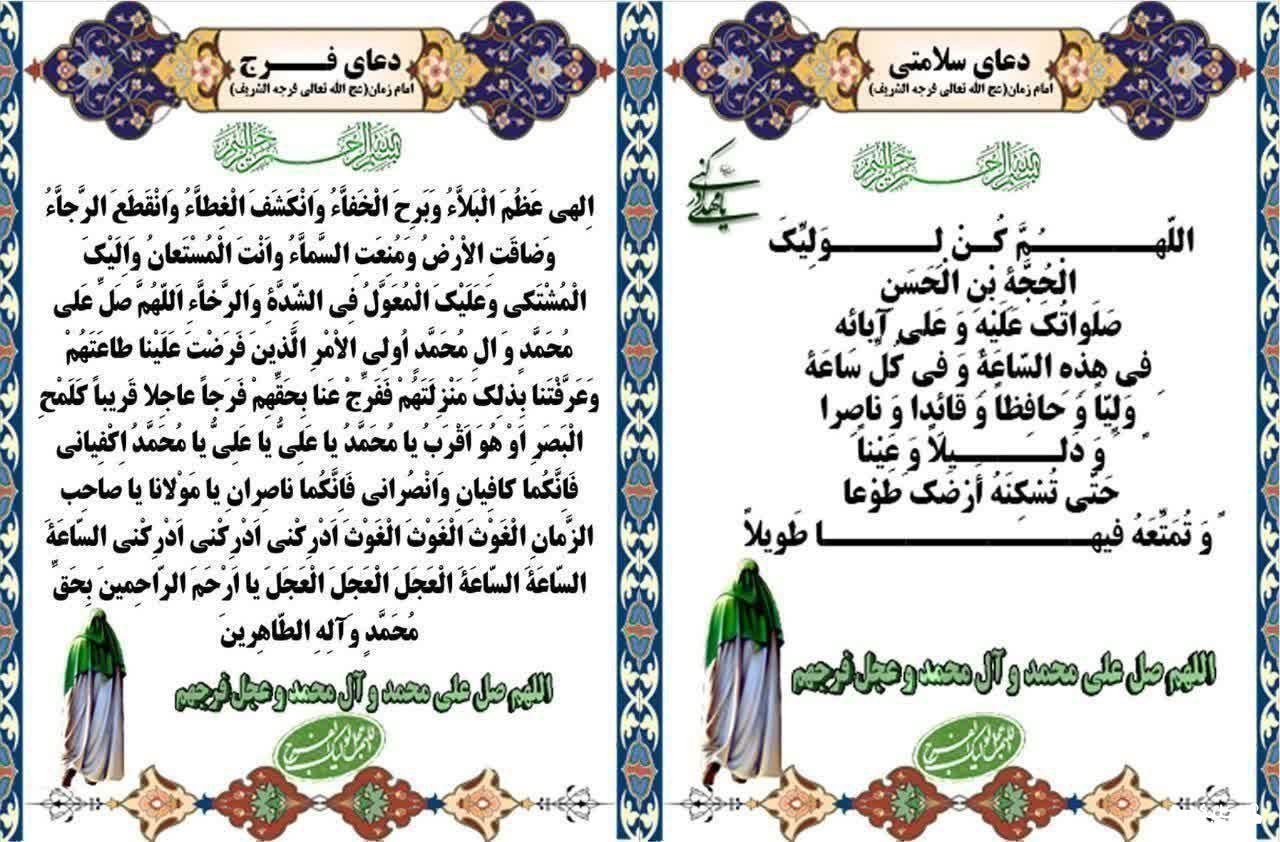 دعای سلامتی
امام زمان(عج الله تعالی فرجه الشریف)
بسم الله الرحمن الرحیم
یا مهدی ادرکنی
اللّهُمَّ کُنْ لِوَلِیِّکَ
الْحُجَّهِٔ بْنِ الْحَسَنِ
صَلَواتُکَ عَلَیْهِ وَ عَلی آبائِه
فِی هذِهِ السّاعَهِٔ وَ فی کُلِّ سَاعَهٔ
وَلِیّاً وَ حَافِظاً وَ قائِدا وَ ناصِرا
وَ دَلِیلاً وَ عَیْناً
حَتّی تُسْکِنَهُ أَرْضَکَ طَوْعا
وَ تُمَتِّعَهُ فیها طَویلاً
اللهم صل علی محمد و آل محمد و عجل فرجهم
اللهم عجل لولیک الفرج
دعای فرج
امام زمان(عج الله تعالی فرجه الشریف)
بسم الله الرحمن الرحیم
اِلهی عَظُمَ الْبَلاَّءُ وَبَرِحَ الْخَفاَّءُ وَانْکَشَفَ الْغِطاَّءُ وَانْقَطَعَ الرَّجاَّءُ
وَضاقَتِ الاْرْضُ وَمُنِعَتِ السَّماَّءُ وَانْتَ الْمُسْتَعانُ وَاِلَیْکَ
الْمُشْتَکی وَعَلَیْکَ الْمُعَوَّلُ فِی الشِّدَّهِٔ وَالرَّخاَّءِ اَللّهُمَّ صَلِّ عَلی
مُحَمَّدٍ وَ الِ مُحَمَّدٍ اُولِی الاْمْرِ الَّذینَ فَرَضْتَ عَلَیْنا طاعَتَهُمْ
وَعَرَّفْتَنا بِذلِکَ مَنْزِلَتَهُمْ فَفَرِّجْ عَنا بِحَقِّهِمْ فَرَجاً عاجِلا قَریباً کَلَمْحِ
الْبَصَرِ اَوْ هُوَ اَقْرَبُ یا مُحَمَّدُ یا عَلِیُّ یا عَلِیُّ یا مُحَمَّدُ اِکْفِیانی
فَاِنَّکُما کافِیانِ وَانْصُرانی فَاِنَّکُما ناصِرانِ یا مَوْلانا یا صاحِبَ
الزَّمانِ الْغَوْثَ الْغَوْثَ الْغَوْثَ اَدْرِکْنی اَدْرِکْنی اَدْرِکْنی السّاعَهَٔ
السّاعَهَٔ السّاعَهَٔ الْعَجَلَ الْعَجَلَ الْعَجَلَ یا اَرْحَمَ الرّاحِمینَ بِحَقِّ
مُحَمَّدٍ وَآلِهِ الطّاهِرینَ
اللهم صل علی محمد و آل محمد و عجل فرجهم
اللهم عجل لولیک الفرج